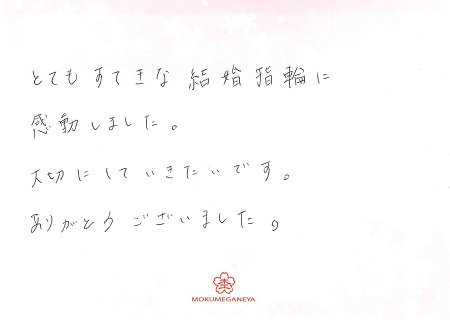 とてもすてきな結婚指輪に
感動しました。
大切にしていきたいです。
ありがとうございました。
MOKUMEGANEYA